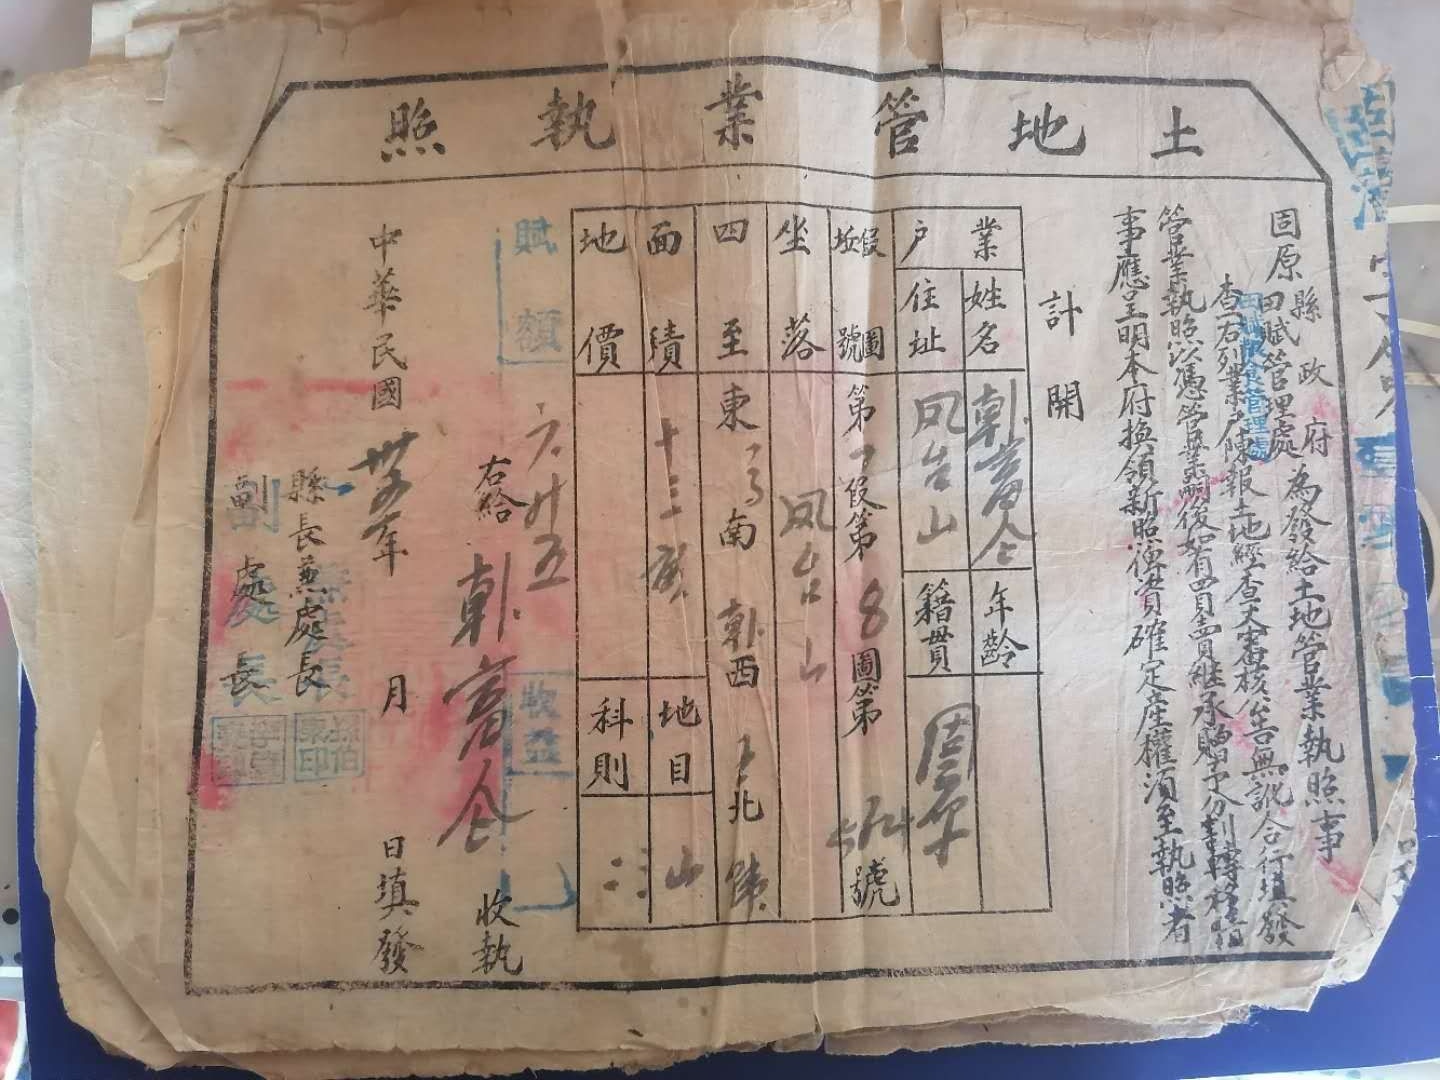 土地管業執照
固原縣政府
田賦管理處
為發給土地管業執照事
查右列業户陳報土地經查丈審核無訛合行填發
管業執照以憑管業嗣後如有買賣繼承贈予分割轉移情
事應呈明本府換領新照俾資確定產權須至執照者
計開
業户
姓名
年齡
住址 凤台山
籍貫 固原
段圖號
第 段第8圖第574號
坐落 凤台山
四至
東 南 西 北
面積
十三
地目 山
地價
科則
賦額
收益
右給
收執
中華民國卅五年 月 日填發
縣長兼處長
副處長